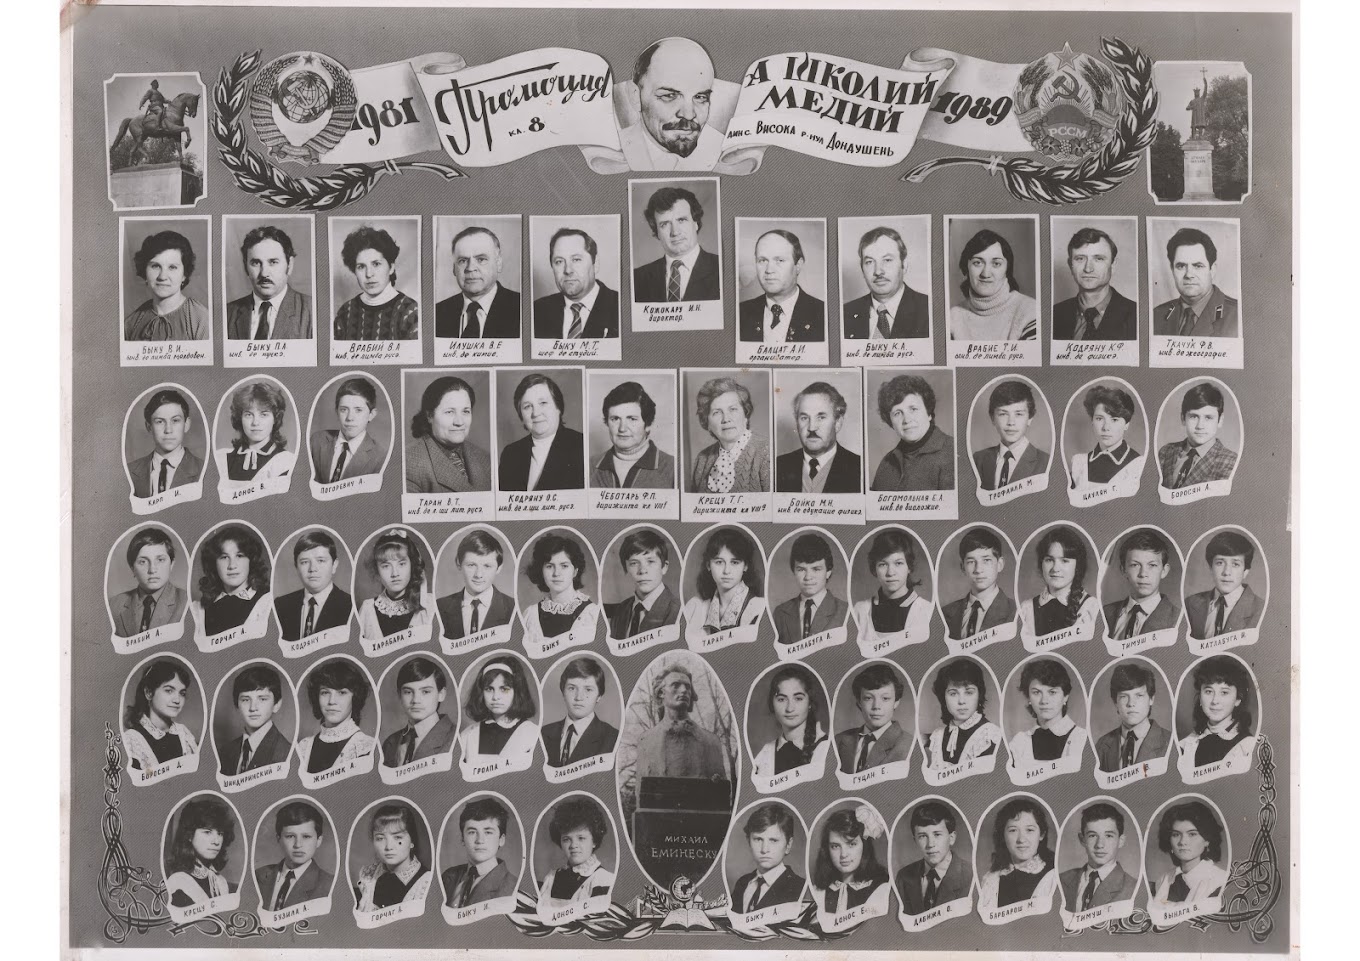 1981
Промоция
кл. 8
А ШКОЛИЙ
МЕДИЙ
дин с. Висока р-нул Дондушень
1989
РССМ
КОЖОКАРУ И.Н.
директор.
БЫКУ В.И.
инв. де лимба молдовен.
БЫКУ П.А.
ВРАБИЙ В.А
инв. де лимба русэ.
ИЛУШКА В.Е
инв. де химие.
БЫКУ М.Т.
шеф де студий.
БАЛЦАТ А.И.
организатор.
БЫКУ К.А.
инв. де лимба русэ.
ВРАБИЕ Т.И.
инв. де лимба русэ.
КОДРЯНУ К.Ф
инв. де физикэ.
ТКАЧУК Ф.В.
инв. де жеографие.
КАРП И.
ДОНОС В.
ПОГОРЕВИЧ А.
ТАРАН В.Т.
инв. де л. ши лит. русэ.
КОДРЯНУ О.С.
инв. де л. ши лит. русэ.
ЧЕБОТАРЬ Ф.П.
дирижинта кл VIII
КРЕЦУ Т.Г.
дирижинта кл VIII
Бойко М.Н.
инв. де едукацие физикэ.
Богомольная Е.Л.
инв. де биоложие.
ТРОФАИЛА М.
ЦАУЛЯН Г.
БОРОСЯН А.
ВРАБИЙ А.
ГОРЧАГ А.
КОДРЯНУ Г.
ХАРАБАРА З.
ЗАПОРОЖАН И.
БЫКУ С.
КАТЛАБУГА Г.
ТАРАН А.
КАТЛАБУГА А.
УРСУ Е.
УСАТЫЙ А.
КАТЛАБУГА С.
ТИМУШ В.
КАТЛАБУГА И.
БОРОСЯН Д.
ШИНДИРИНСКИЙ И
ЖИТНЮК А.
ТРОФАИЛА В.
ГРОАПА А.
ЗАБОЛЬТНЫЙ В.
БЫКУ В.
ГУЦАН Е.
ГОРЧАГ И.
ВЛАС О.
ПОСТОВИК В.
МЕЛНИК Ф.
МИХАИЛ
ЕМИНЕСКУ
КРЕЦУ С.
БУЗИЛА А.
ГОРЧАГ
БЫКУ И.
ДОНОС С.
БЫКУ А
ДОНОС Е.
ДАБИЖА О.
БАРБАРОШ М.
ТИМУШ Г.